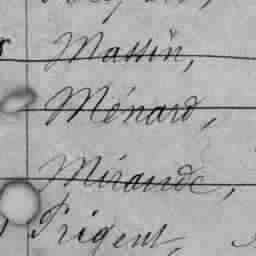 Massin,
Ménard,
Mirande,
Prigent,